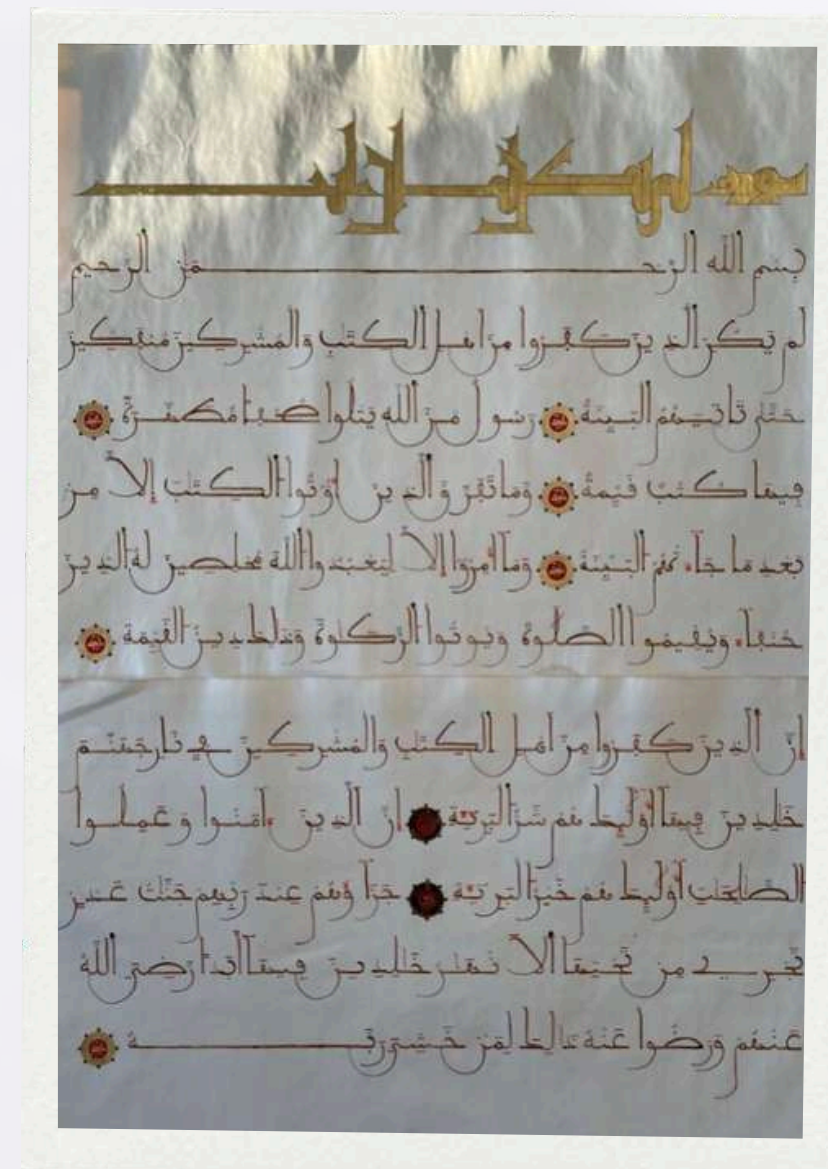 سورة لم يكن الذين
بسم الله الرحمن الرحيم
لم يكن الذين كفروا من أهل الكتب والمشركين منفكين
حتى تأتيهم البينة رسول من الله يتلوا صحفا مطهرة
فيها كتب قيمة وما تفرق الذين أوتوا الكتب إلا من
بعد ما جاءتهم البينة وما أمروا إلا ليعبدوا الله مخلصين له الدين
حنفاء ويقيموا الصلوة ويوتوا الزكوة وذلك دين القيمة
إن الذين كفروا من أهل الكتب والمشركين في نار جهنم
خلدين فيها أولئك هم شر البريئة إن الذين ءامنوا وعملوا
الصلحت أولئك هم خير البريئة جزاؤهم عند ربهم جنت عدن
تجري من تحتها الأنهر خلدين فيها أبدا رضي الله
عنهم ورضوا عنه ذلك لمن خشي ربه